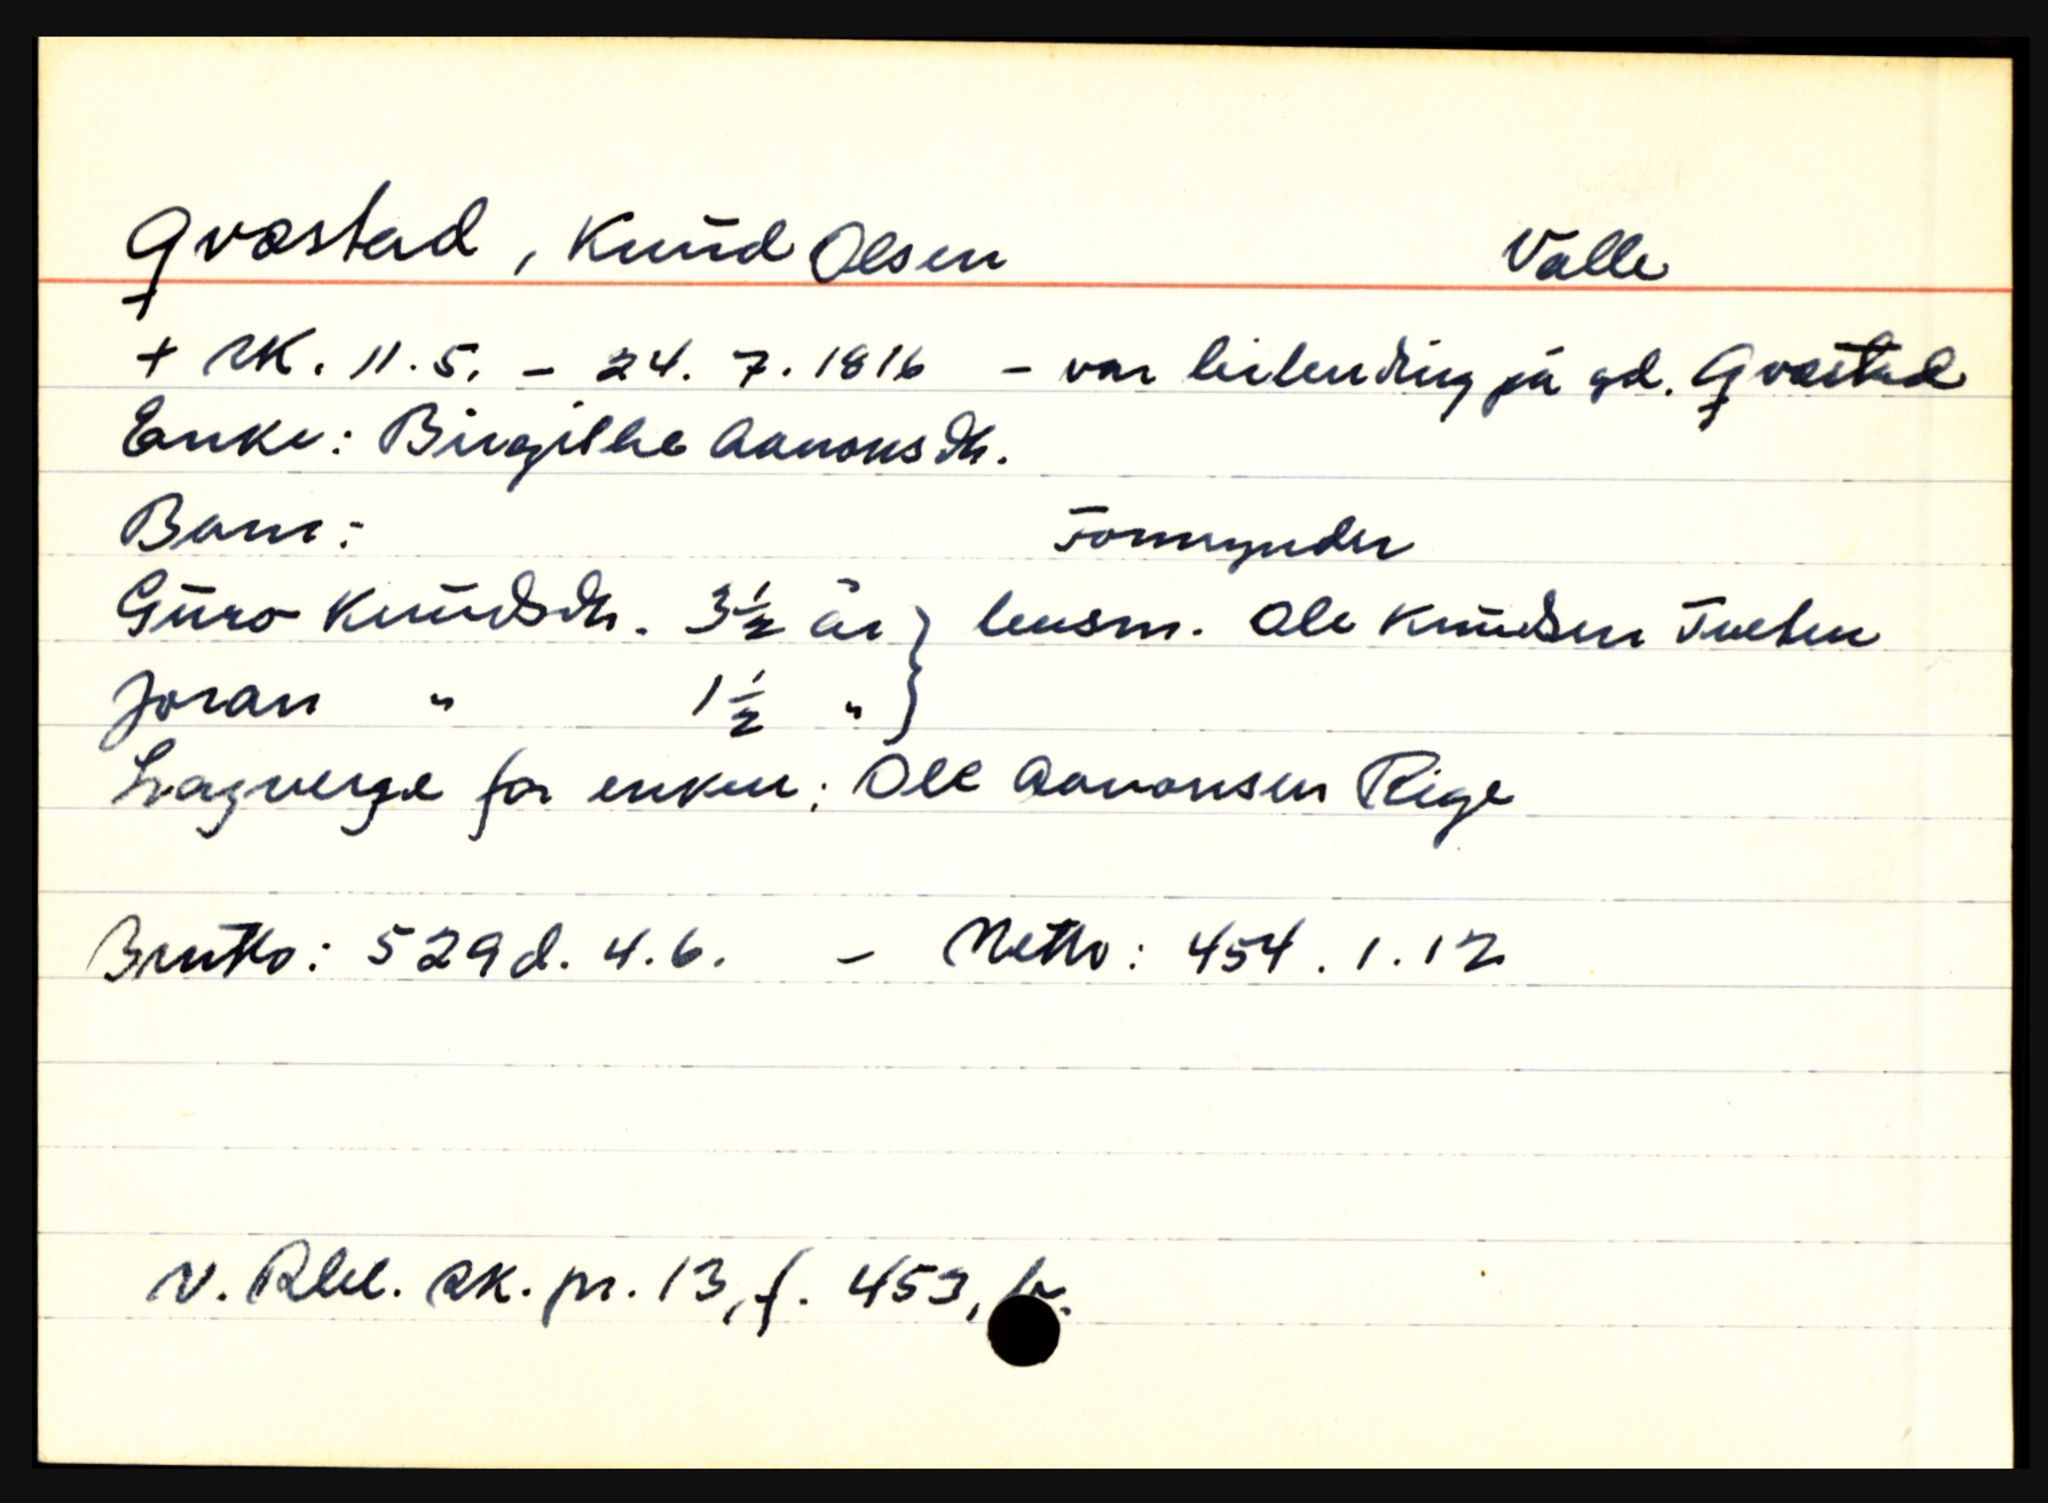 Qvæstad, Knud Olsen Valle
+ sk. 11.5. - 24.7.1816 - var leilending på gd. Qvæstad
Enke: Birgithe Aanonsdtr.
Barn: Formynder
Guro Knudsdtr. 3½ år } lensm. Ole Knudsen Tveten
Joran " 1½ " }
Lagverge for enken: Ole Aanonsen Rige
Brutto: 529 d. 4.6. - Netto: 454.1.12
V. Rbl. sk. pr. 13, f. 453,